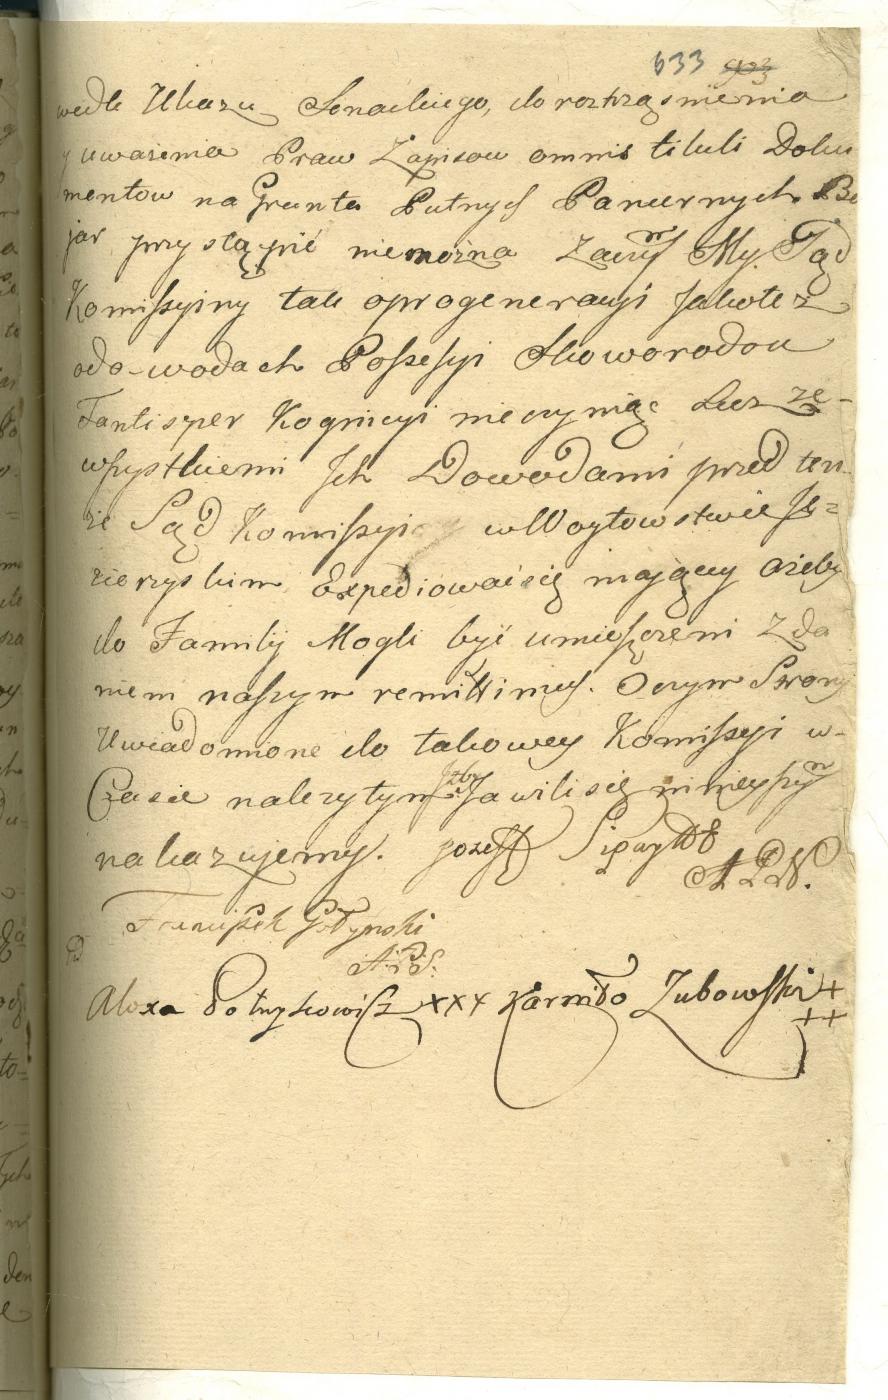 633
wedle Ukazu Senackiego, do roztrząsnienia
y uważenia Praw Zapisow omnis tituli Doku
mentow na Grunta Putnych Pancernych Bo
jar przystąpić niemożna Zaczym My Sąd
Komissyiny tak oprogeneracyi Jakotez
odo-wodach Possesyi Skoworodou
Tantisper Kognicyi nieczyniąc Lecz ze-
wszystkiemi Ich Dowodami przed ten
że Sąd Komissyi w Woytowstwie Je=
zierzyskim Expediowaćsię mający ażeby
do Familij Mogli być umieszczeni Zda
niem naszym remittimus. Oczym Strony
Uwiadomione do takowey Komissyi w-
Czasie należytym żeby Jawilisię ninieyszym
nakazujemy. Jozeff
A P W.
Franciszek Gołynski
A. P. S.
Alexa Potrykowicz xxx Karniło Zubowski ++
++